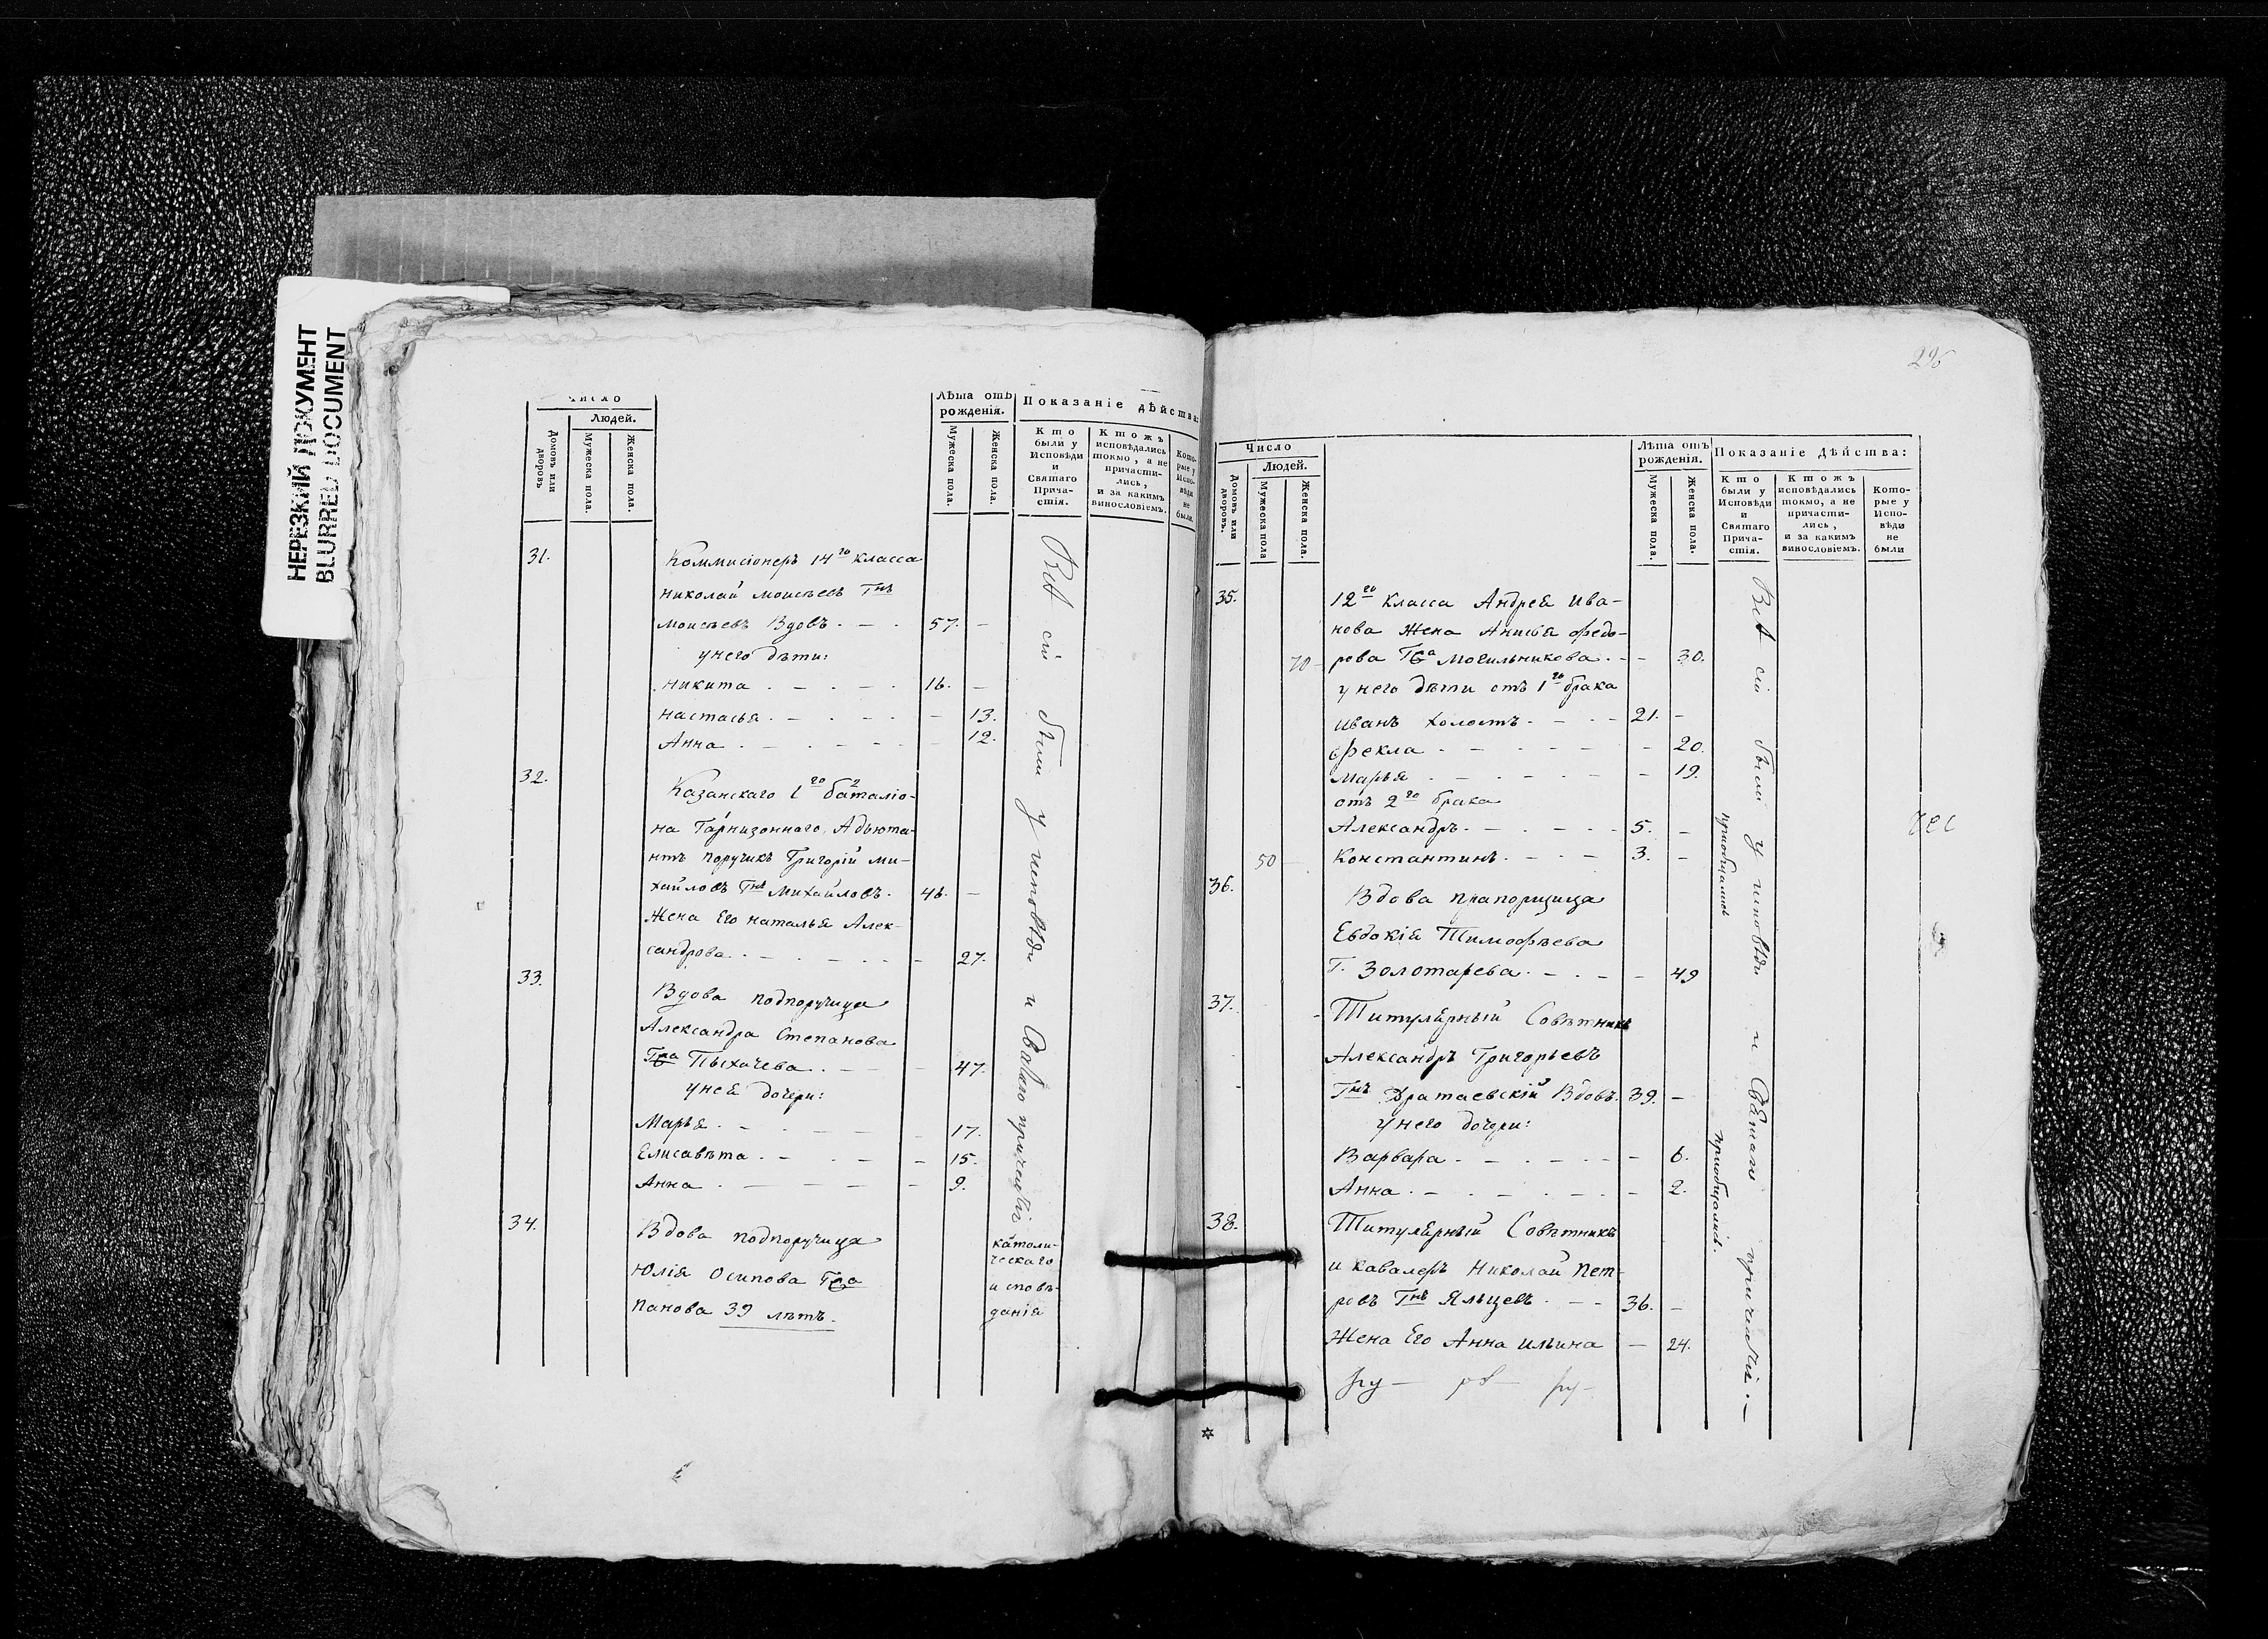 НЕРЕЗКИЙ ДОКУМЕНТ
BLURRED DOCUMENT
Число
Людей.
Домовъ или дворовъ
Мужеска пола.
Женска пола.
Лѣта отъ рожденія.
Мужеска пола.
Женска пола.
Показаніе дѣйства:
Кто были у Исповѣди и Святаго Прича-стія.
Ктожъ исповѣдались токмо, а не причасти-лись, и за какимъ винословіемъ.
Кото-рые у Испо-вѣди не были.
31. Коммисіонеръ 14го класса
Николай Моисѣевъ Гнъ
Моисѣевъ Вдовъ. 57. -
у него дѣти:
Никита 16. -
Настасья - 13.
Анна - 12.
32. Казанскаго 1го баталіо-
на Гарнизоннаго Адьюта-
нтъ поручикъ Григорій Ми-
хайловъ Гнъ Михайловъ. 46. -
Жена Его Наталья Алек-
сандрова - 27.
33. Вдова подпоручица
Александра Степанова
Гжа Пыхачева - 47.
у нея дочери:
Марья - 17.
Елисавѣта - 15.
Анна - 9.
34. Вдова подпоручица
Юлія Осипова Гжа
Панова 39 лѣтъ.
Всѣ сіи были у исповѣди и Святаго причастія
католи-
ческаго
исповѣ-
данія
296
Число
Людей.
Домовъ или дворовъ.
Мужеска пола
Женска пола.
Лѣта отъ рожденія.
Мужеска пола.
Женска пола.
Показаніе Дѣйства:
Кто были у Исповѣди и Святаго Прича-стія.
Ктожъ исповѣдались токмо, а не причасти-лись, и за какимъ винословіемъ.
Кото-рые у Испо-вѣди не были
35. 12го класса Андрея Ива-
нова Жена Анисья Ѳедо-
70 - рова Гжа Могильникова. - 30.
у него дѣти отъ 1го брака
Иванъ холостъ. 21. -
Ѳекла - 20.
Марья - 19.
отъ 2го брака
Александръ. 5. -
50 Константинъ. 3. -
36. Вдова прапорщица
Евдокія Тимофѣева
Г. Золотарева. - 49
37. Титулярный Совѣтникъ
Александръ Григорьевъ
Гнъ Вдовъ. 39. -
у него дочери:
Варвара - 6.
Анна - 2.
38. Титулярный Совѣтникъ
и кавалеръ Николай Пет-
ровъ Гнъ Яльцевъ 36. -
Жена Его Анна Ильина - 24.
Всѣ сіи были у исповѣди и Святаго причастія.
приобщались
приобщались.